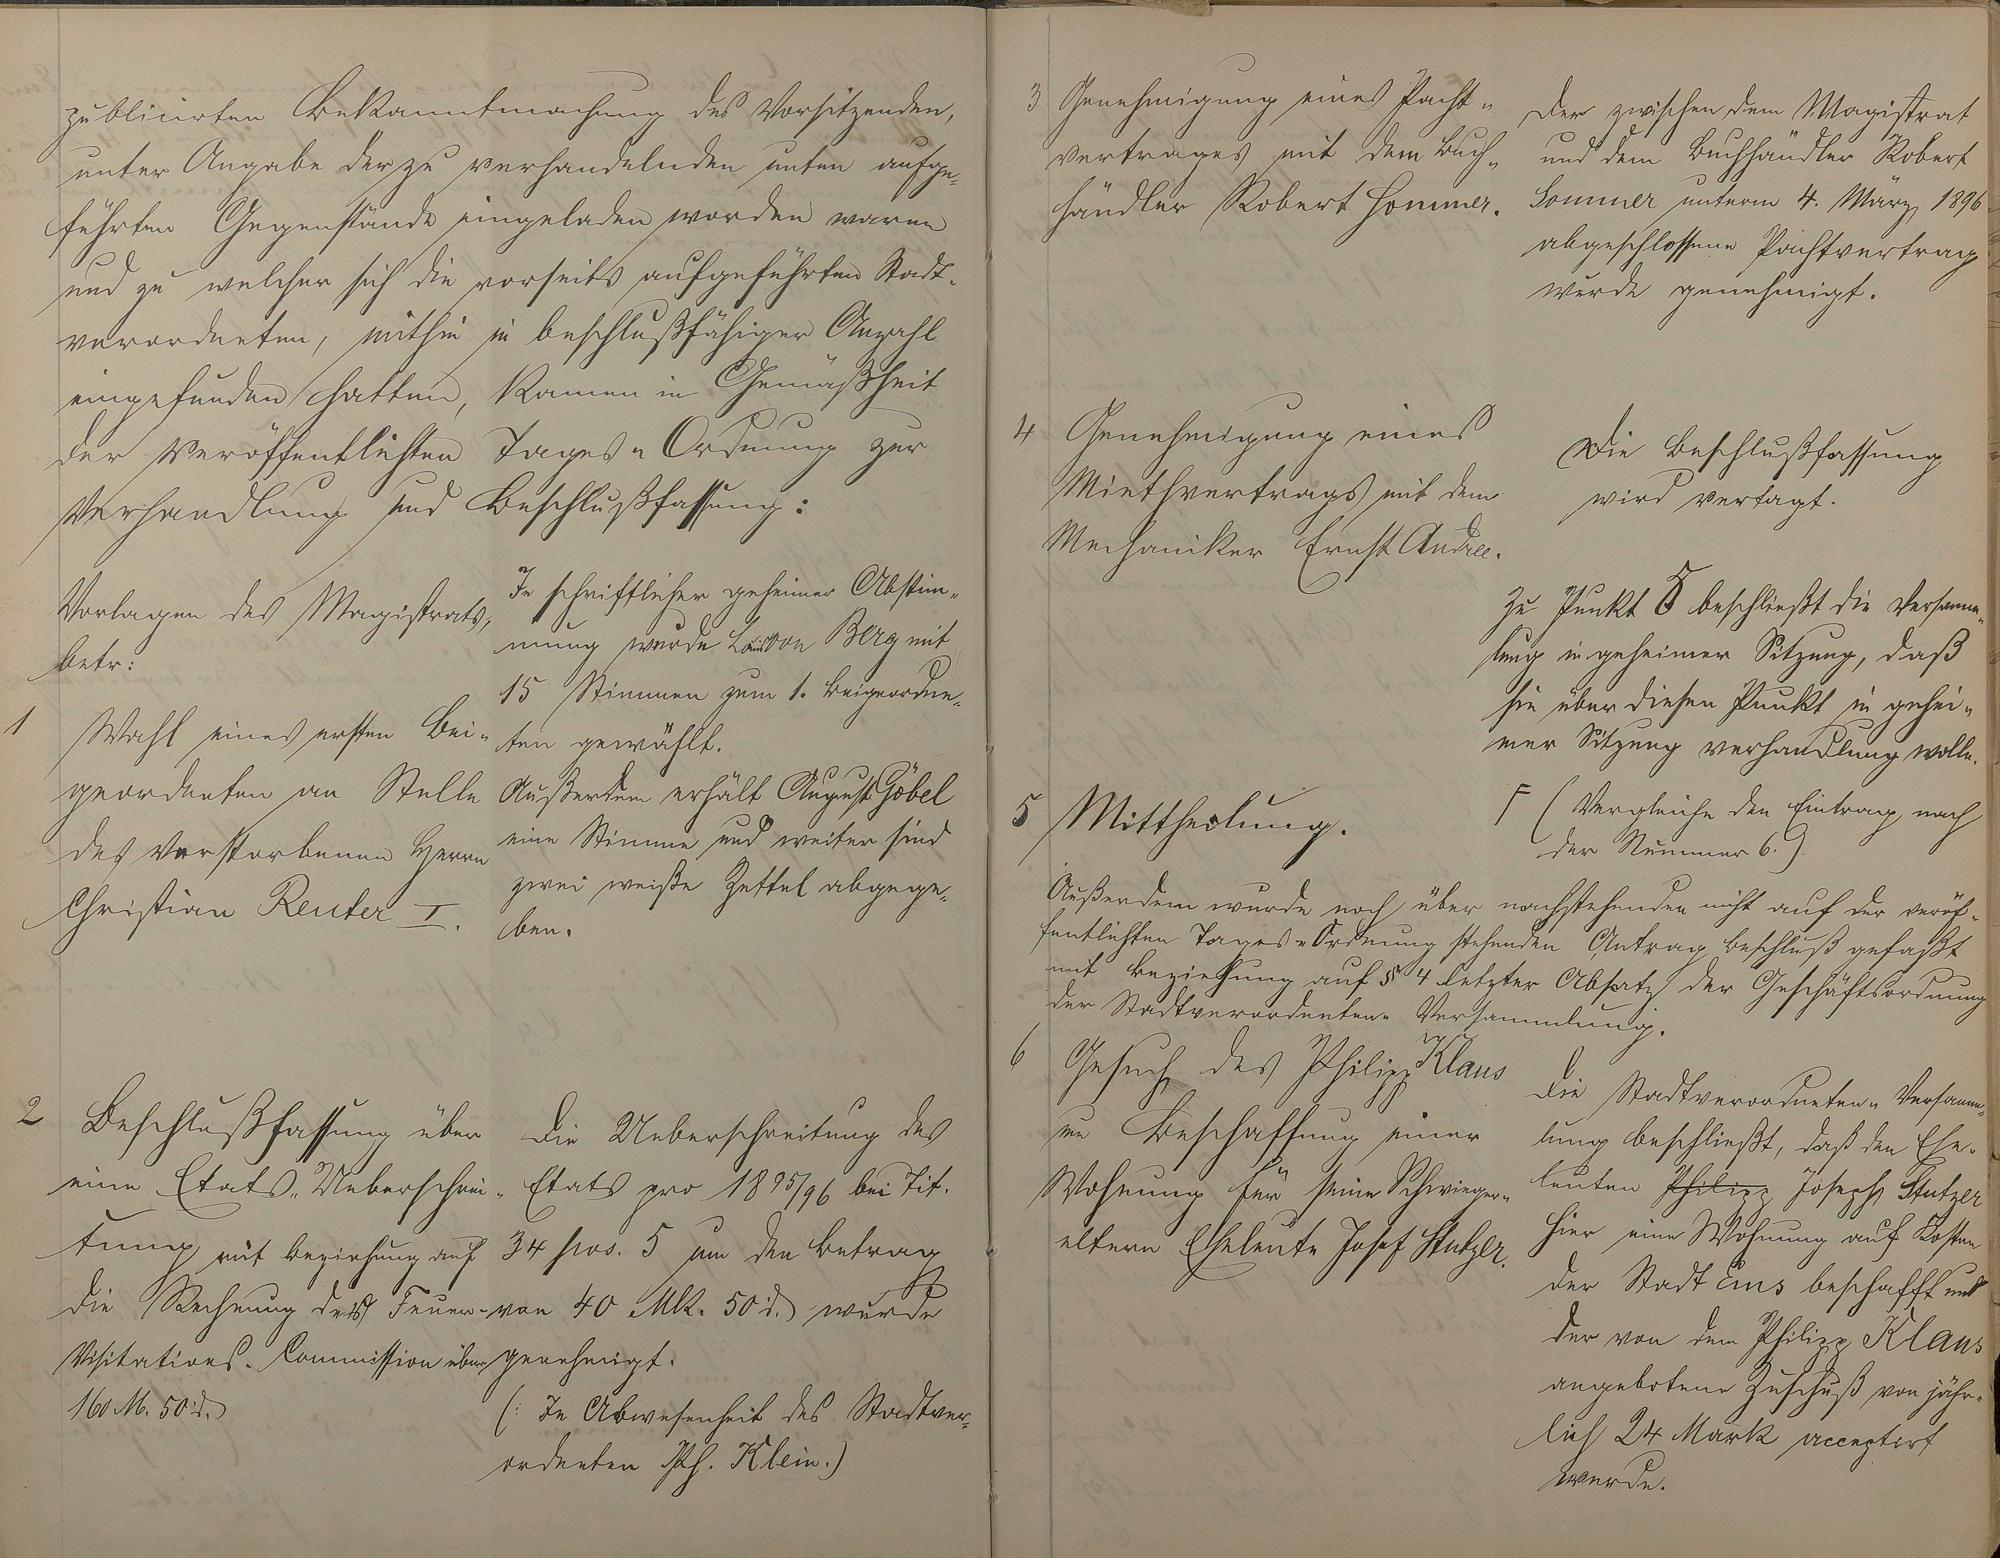 publicirten Bekanntmachung des Vorsitzenden,
unter Angabe der zu verhandelnden unten aufge-
führten Gegenstände eingeladen worden waren
und zu welcher sich die vorseits aufgeführten Stadt-
verordneten, mithin in beschlußfähiger Anzahl
eingefunden hatten, kamen in Gemäßheit
der veröffentlichten Tages-Ordnung zur
Verhandlung und Beschlußfassung:
Vorlagen des Magistrats,
betr:
1 Wahl eines ersten Bei-
geordneten an Stelle
des verstorbenen Herrn
Christian Reuter I.
In schriftlicher geheimer Abstim-
mung wurde von Berg mit
15 Stimmen zum 1. Beigeordne-
ten gewählt.
Außerdem erhält August Göbel
eine Stimme und weiter sind
zwei weiße Zettel abgege-
ben.
2 Beschlußfassung über
eine Etats-Ueberschrei-
tung mit Beziehung auf
die Rechnung der Feuer-
Visitations-Commission über
160 M. 50 d.
Die Ueberschreitung des
Etats pro 1895/96 bei Tit.
34 pos. 5 um den Betrag
von 40 Mk. 50 d. wurde
genehmigt.
(: In Abwesenheit des Stadtver-
ordneten Ph. Klein.)
3 Genehmigung eines Pacht-
vertrages mit dem Buch-
händler Robert Sommer.
Der zwischen dem Magistrat
und dem Buchhändler Robert
Sommer unterm 4. März 1896
abgeschlossene Pachtvertrag
wurde genehmigt.
4 Genehmigung eines
Miethvertrags mit dem
Mechaniker Ernst Andree.
Die Beschlußfassung
wird vertagt.
Zu Punkt 5 beschließt die Versamm-
lung in geheimer Sitzung, daß
sie über diesen Punkt in gehei-
mer Sitzung verhandlung wolle.
5 Mittheilung.
F (Vergleiche den Eintrag nach
der Nummer 6.)
Außerdem wurde noch über nachstehenden nicht auf der veröf-
fentlichten Tages-Ordnung stehenden Antrag Beschluß gefaßt
mit Beziehung auf § 4 letzter Absatz der Geschäftsordnung
der Stadtverordneten-Versammlung.
6 Gesuch des Philipp Klaus
um Beschaffung einer
Wohnung für seine Schwieger-
eltern Eheleute Josef Stutzer.
Die Stadtverordneten-Versamm-
lung beschließt, daß den Ehe-
leuten Philipp Joseph Stutzer
hier eine Wohnung auf Kosten
der Stadt Ems beschafft und
der von dem Philipp Klaus
angebotene Zuschuß von jähr-
lich 24 Mark acceptirt
werde.